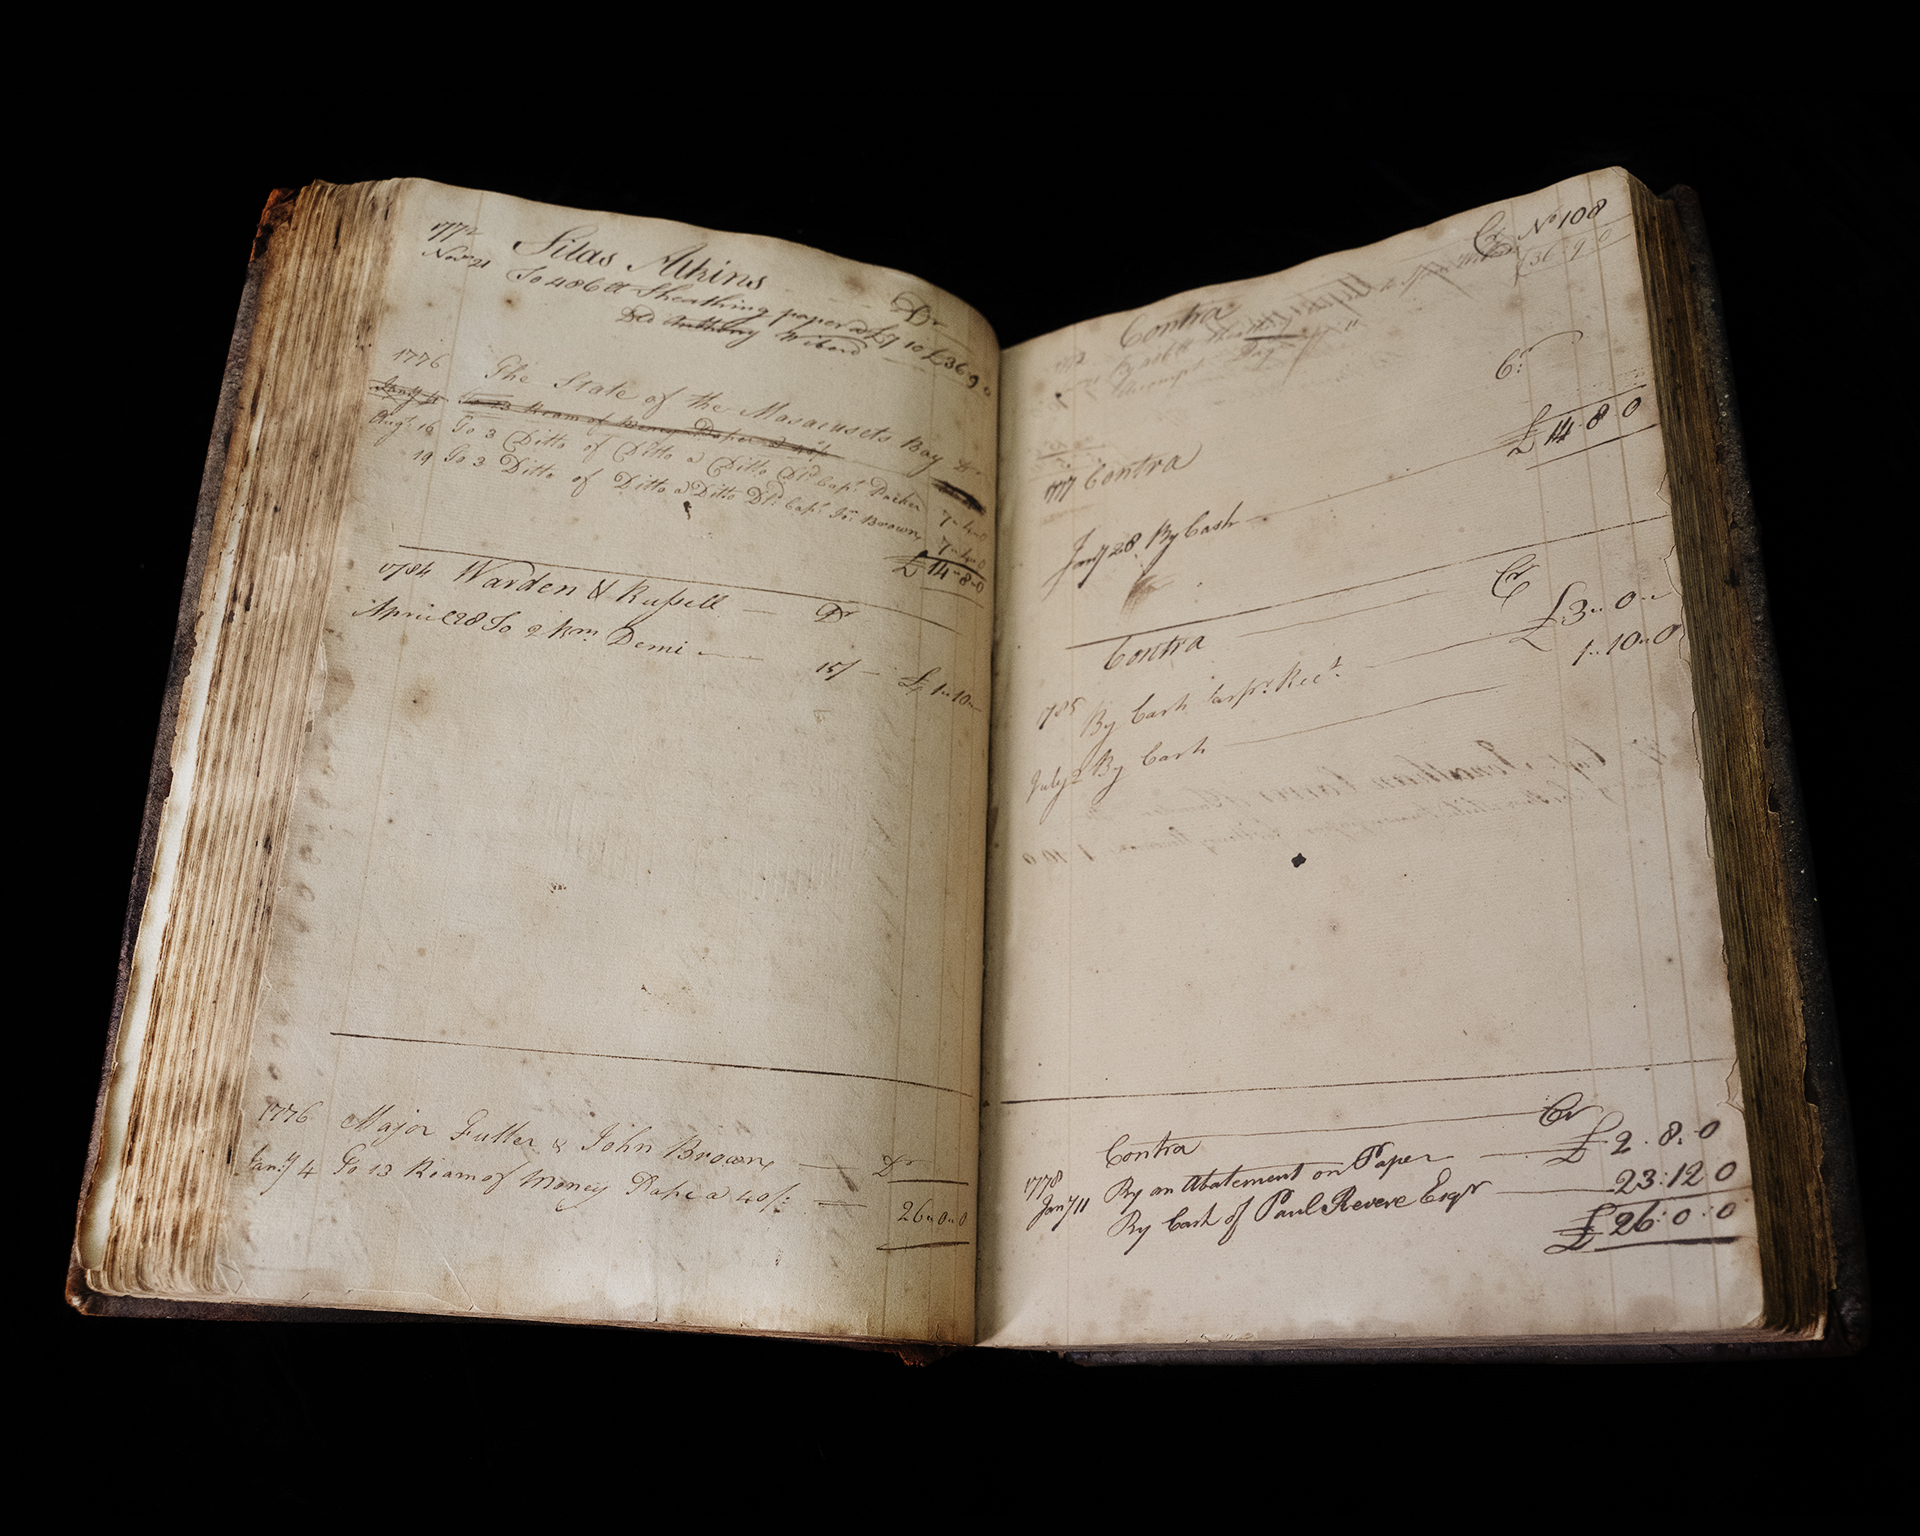 1772 Silas Atkins Dr
Novr 21 To 486 lb Sheathing paper a £7 10 £36 9 0
Dld Anthony Wibord
1776 The State of the Masacusets Bay Dr
Jany 4 To 13 Ream of Money Paper a 40/
Augt 16 To 3 Ditto of Ditto a Ditto Dld Capt Parker 7 4 0
19 To 3 Ditto of Ditto a Ditto Dld Capt Jno Brown 7 4 0
£14 8 0
1784 Warden & Russell Dr
April 28 To 2 Rm Demi 15/ £1 10
1776 Major Fuller & John Brown Dr
Jany 4 To 13 Ream of Money Pape a 40/ 26 0 0
Cr No 108
Contra £36 9 0
Cr
1777 Contra £14 8 0
Jany 28 By Cash
Contra Cr
1785 By Cash as pr Rect £3 0
July 2 By Cash 1 10 0
Contra Cr
1778 By an Abatement on Paper £2 8 0
Jany 11 By Cash of Paul Revere Esqr 23:12 0
£26:0:0